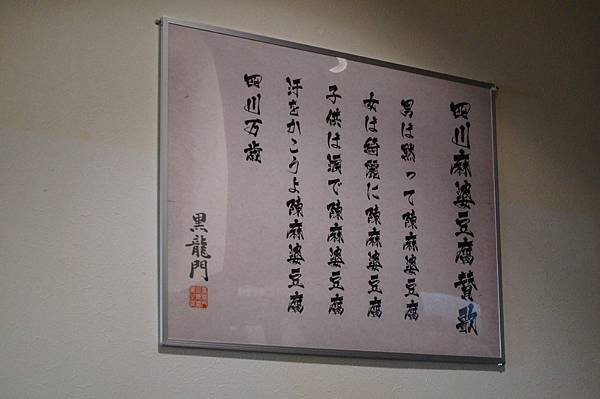 四川麻婆豆腐賛歌
男は黙って陳麻婆豆腐
女は綺麗に陳麻婆豆腐
子供は涙で陳麻婆豆腐
汗をかこうよ陳麻婆豆腐
四川万歳
黒龍門